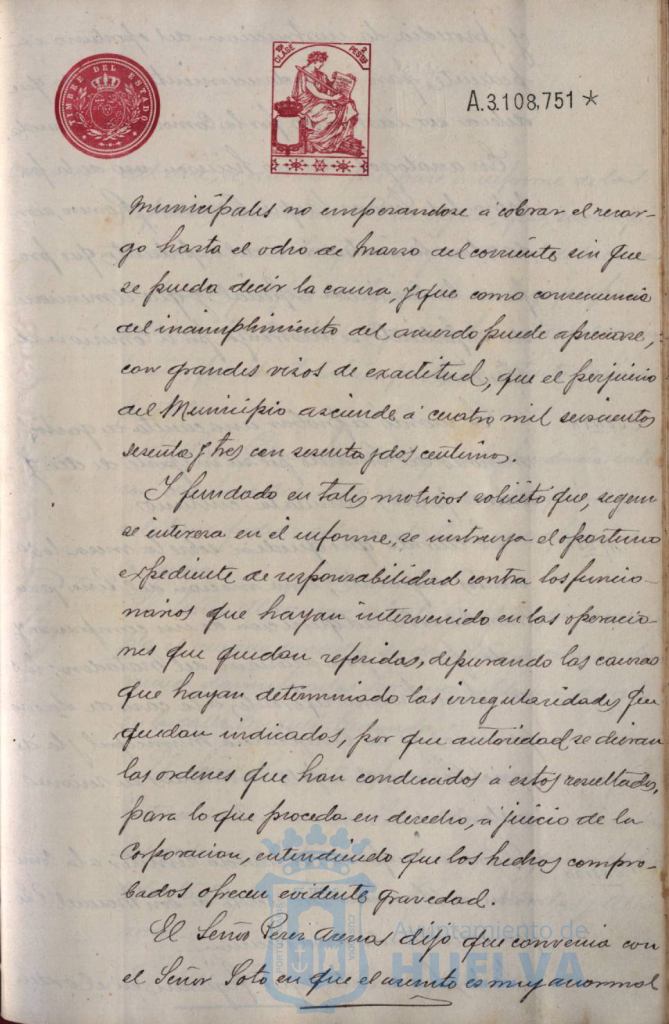 TIMBRE DEL ESTADO
10ª CLASE 2 PESTAS
A.3.108,751 *
Municipales no emperandose á cobrar el recar-
go hasta el ocho de Marzo del corriente sin que
se pueda decir la causa, y que como consecuencia
del incumplimiento del acuerdo puede apreciarse,
con grandes visos de exactitud, que el perjuicio
del Municipio asciende á cuatro mil seiscientos
sesenta y tres con sesenta y dos centimos.
Y fundado en tales motivos solicitó que, segun
se interesa en el informe, se instruya el oportuno
expediente de responsabilidad contra los funcio-
narios que hayan intervenido en las operacio-
nes que quedan referidas, depurando las causas
que hayan determinado las irregularidades que
quedan indicados, por que autoridad se dieran
las ordenes que han conducidos á estos resultados,
para lo que proceda en derecho, á juicio de la
Corporacion, entendiendo que los hechos compro-
bados ofrecen evidente gravedad.
El Señor Perez Arenas dijo que convenia con
el Señor Soto en que el asunto es muy anormal
Ayuntamiento de
HUELVA